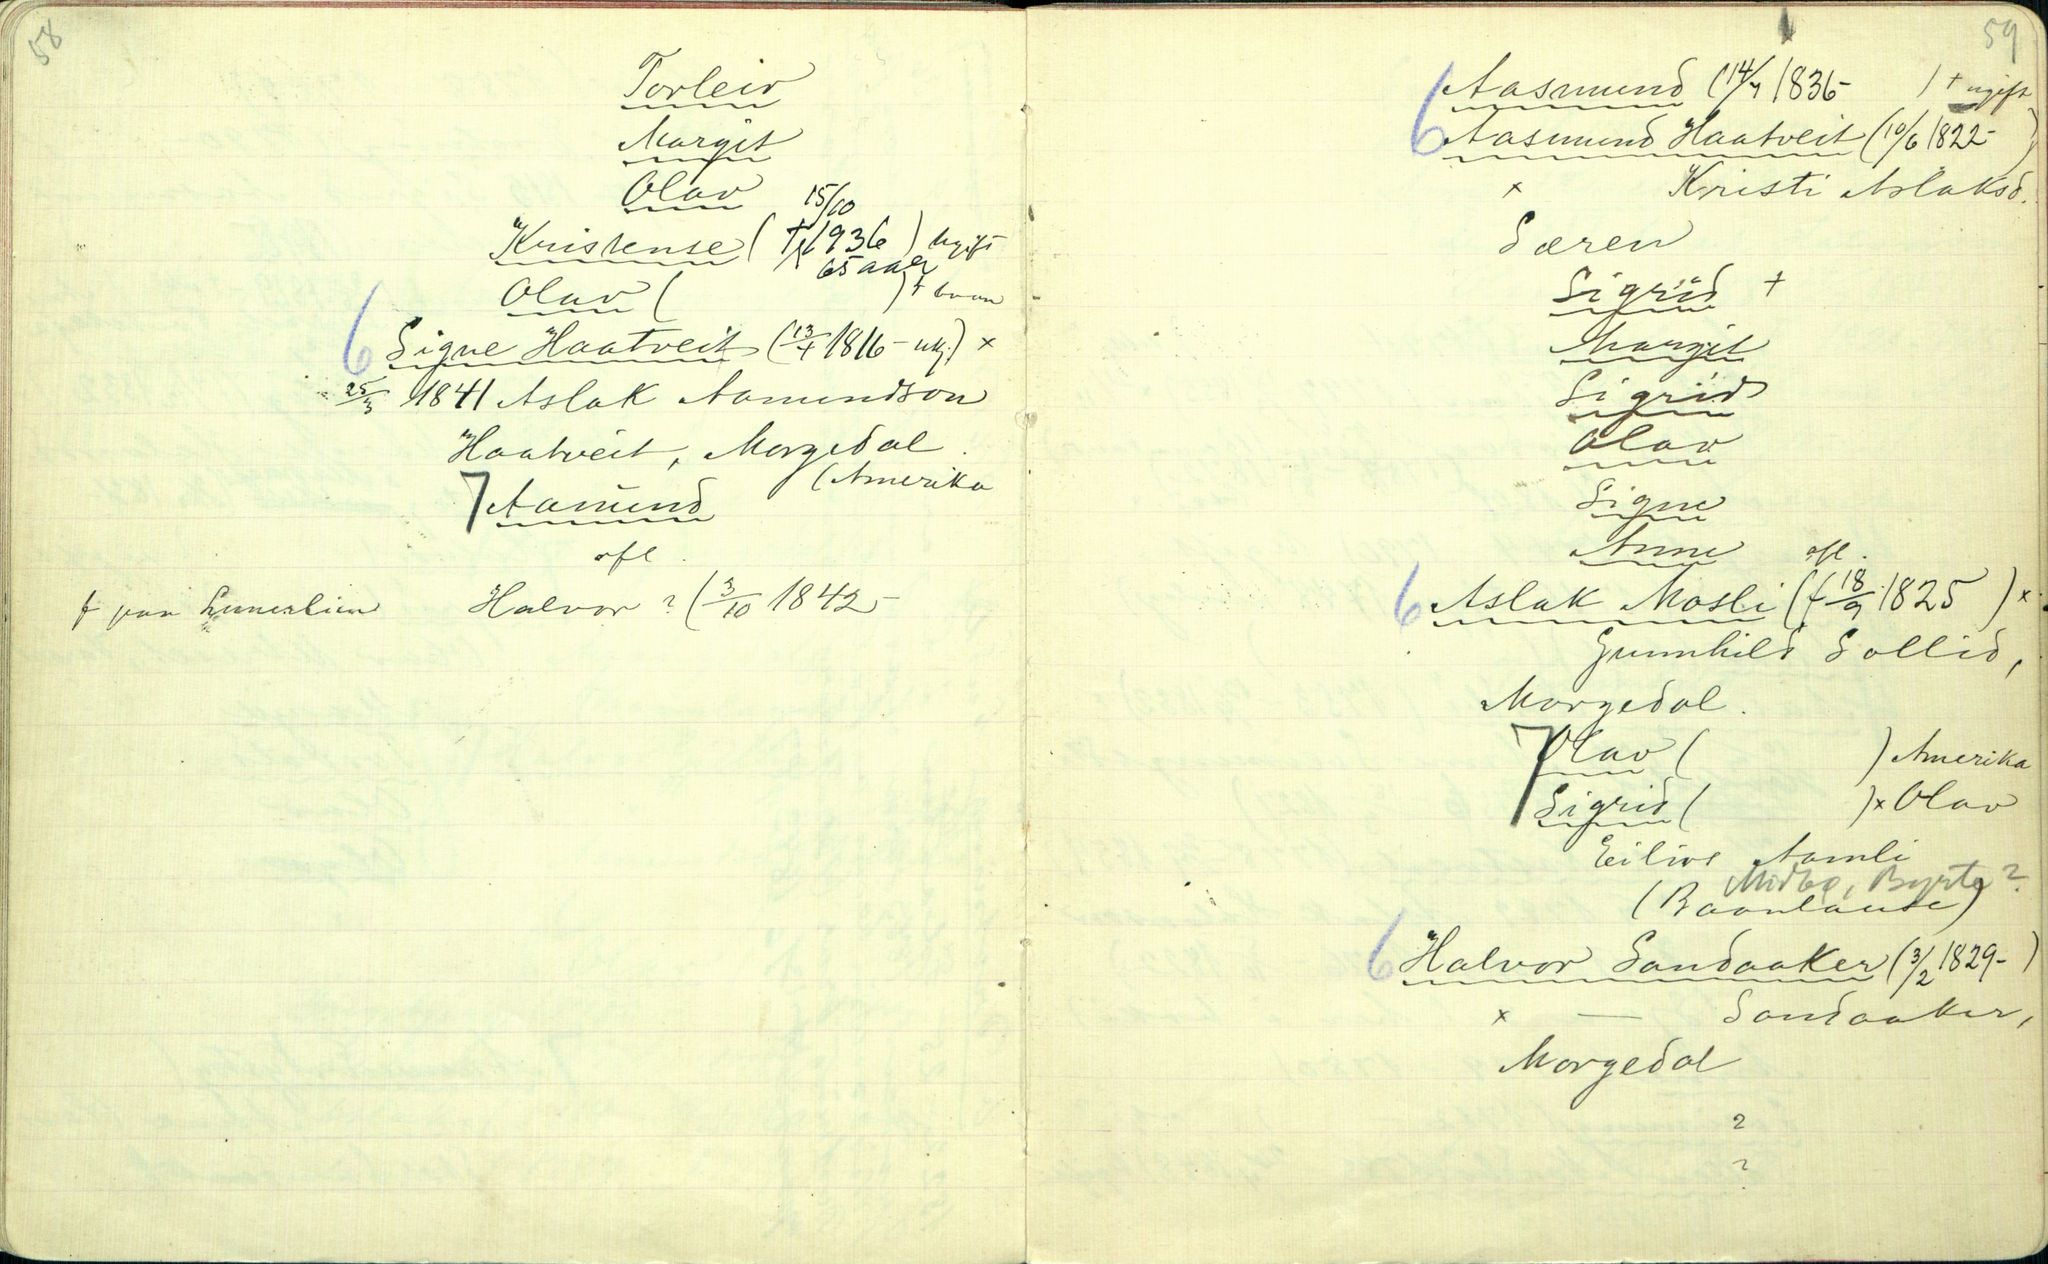 58
Torleiv
Margit
Olav
15/10
Kristense ( † 1936 ) Ugift
65 aar
Olav ( ) † baan
6 Signe Haatveit (13/4 1816 - ukj.) ×
25/3 1841 Aslak Aamundson
Haatveit, Morgedal.
(Amerika
7 Aamund
ofl.
f paa Halvor ? (3/10 1842 -
59
6 Aasmund (14/7 1836 - ) † ugift
6 Aasmund Haatveit (10/6 1822 - )
× Kristi Aslaksd.
Søren
Sigrid †
Margit
Sigrid
Olav
Signe
Anne ofl.
6 Aslak Mosli (f 18/9 1825 ) ×
Gunnhild Sollid,
Morgedal.
7 Olav ( ) Amerika
Sigrid ( ) × Olav
Eilivs Aamli
Midbø, Byrte ?
(Baanlause)
6 Halvor Sandaaker (3/2 1829 - )
× — Sandaaker,
Morgedal
?
?